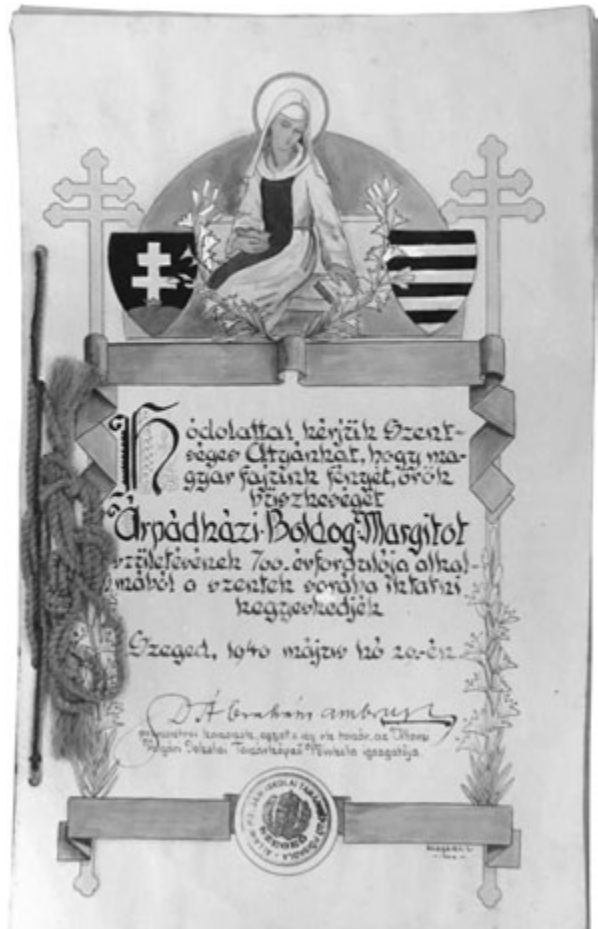 Hódolattal kérjük Szent-
séges Atyánkat, hogy ma-
gyar fajunk fényét, örök
büszkeségét
Árpádházi Boldog Margitot
születésének 700. évfordulója alkal-
mából a szentek sorába iktatni
kegyeskedjék
Szeged, 1940 május hó 20.-én
Dr Ábrahám Ambrus
egyet. tanár, az Állami
Polgári Iskolai Tanárképző Főiskola igazgatója
ÁLLAMI POLGÁRI ISKOLAI TANÁRKÉPZŐ FŐISKOLA
SZEGED